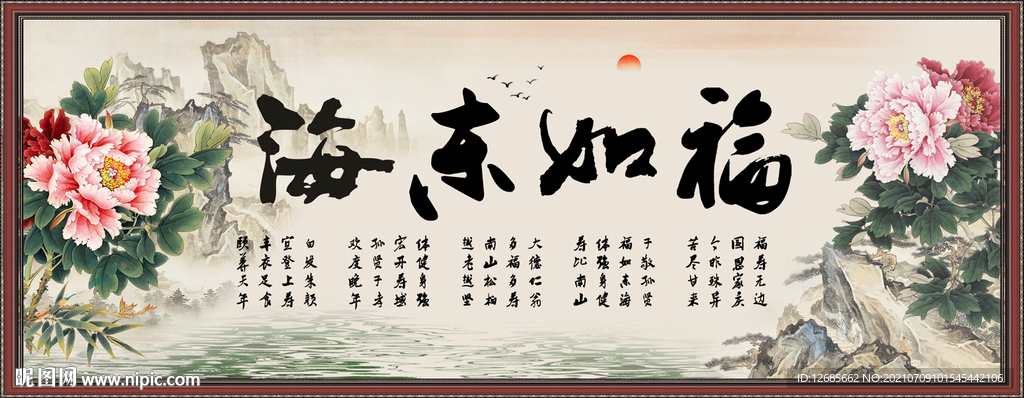 福如东海
福寿无边
国恩家庆
今昨殊异
苦尽甘来
子敬孙贤
福如东海
体强身健
寿比南山
大德仁翁
多福多寿
南山松柏
越老越坚
体健身强
宏开寿域
孙贤子孝
欢度晚年
白发朱颜
宜登上寿
丰衣足食
颐养天年
昵图网 www.nipic.com
ID:12685662 NO:20210709101545442106